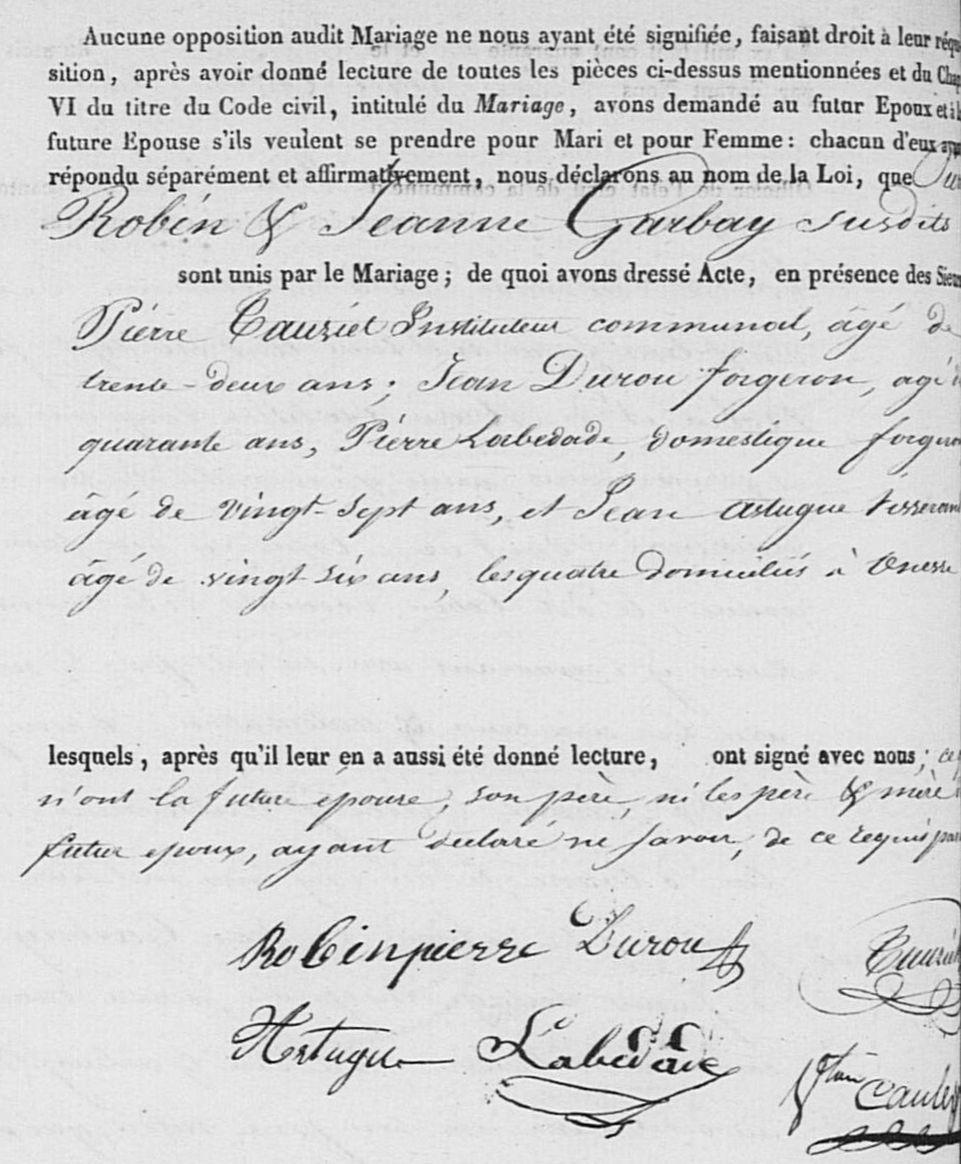 Aucune opposition audit Mariage ne nous ayant été signifiée, faisant droit à leur réqu
sition, après avoir donné lecture de toutes les pièces ci-dessus mentionnées et du Chap
VI du titre du Code civil, intitulé du Mariage, avons demandé au futur Epoux et à l
future Epouse s'ils veulent se prendre pour Mari et pour Femme : chacun d'eux aya
répondu séparément et affirmativement, nous déclarons au nom de la Loi, que
Robin & Jeanne Garbay susdits
sont unis par le Mariage ; de quoi avons dressé Acte, en présence des Sieu
Pierre Cauziet Instituteur communal, âgé de
trente-deux ans ; Jean Durou forgeron, agé
quarante ans, Pierre Labedade, domestique forgero
âgé de vingt-sept ans, et Jean Artugue tisserand
âgé de vingt-six ans, les quatre domiciliés à Onesse
lesquels, après qu'il leur en a aussi été donné lecture, ont signé avec nous ; ce
n'ont la future épouse, son père, ni les père & mère
futur epoux, ayant déclaré ne savoir, de ce requis par
Robin pierre Durou
Artugue Labedade